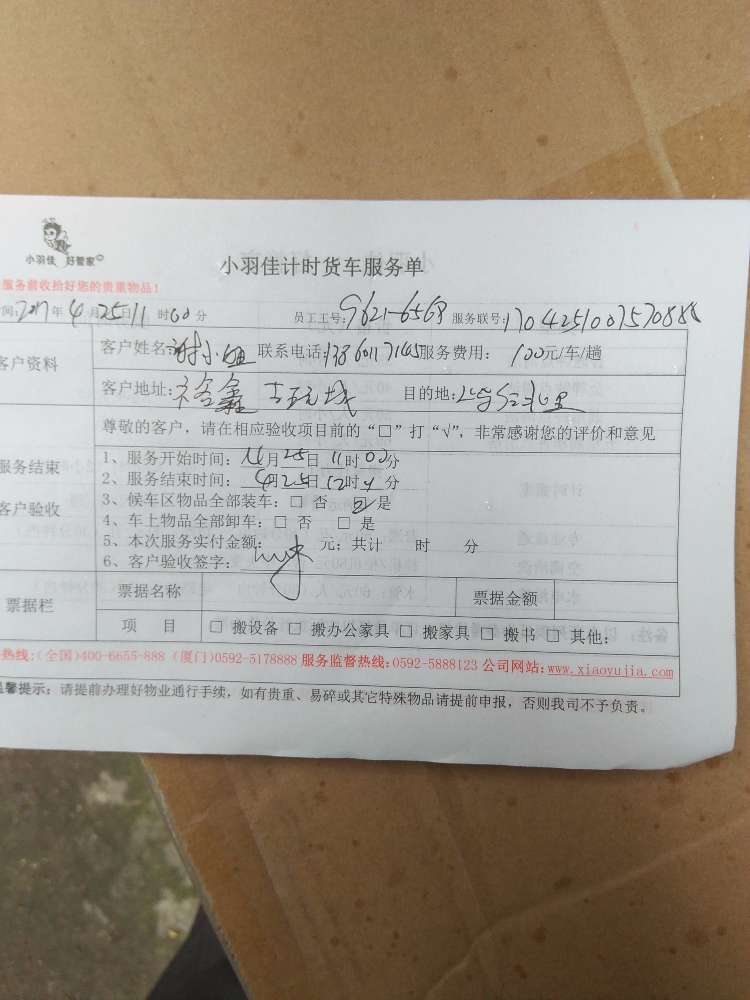 小羽佳 好管家
小羽佳计时货车服务单
服务前收拾好您的贵重物品!
间:2017年4月25日11时00分 员工工号:9621-6568 服务联号:170425100757088
客户资料 客户姓名:谢小姐 联系电话:13860117145 服务费用: 100元/车/趟
客户地址:裕鑫 目的地:
尊敬的客户,请在相应验收项目前的“□”打“√”,非常感谢您的评价和意见
服务结束
客户验收
1、服务开始时间:4月25日11时00分
2、服务结束时间:4月25日12时 分
3、候车区物品全部装车:□ 否 ☑是
4、车上物品全部卸车:□ 否 □ 是
5、本次服务实付金额: 元;共计 时 分
6、客户验收签字:
票据栏 票据名称 票据金额
项 目 □ 搬设备 □ 搬办公家具 □ 搬家具 □ 搬书 □ 其他:
热线:(全国)400-6655-888 (厦门)0592-5178888 服务监督热线:0592-5888123 公司网站:www.xiaoyujia.com
温馨提示:请提前办理好物业通行手续,如有贵重、易碎或其它特殊物品请提前申报,否则我司不予负责。